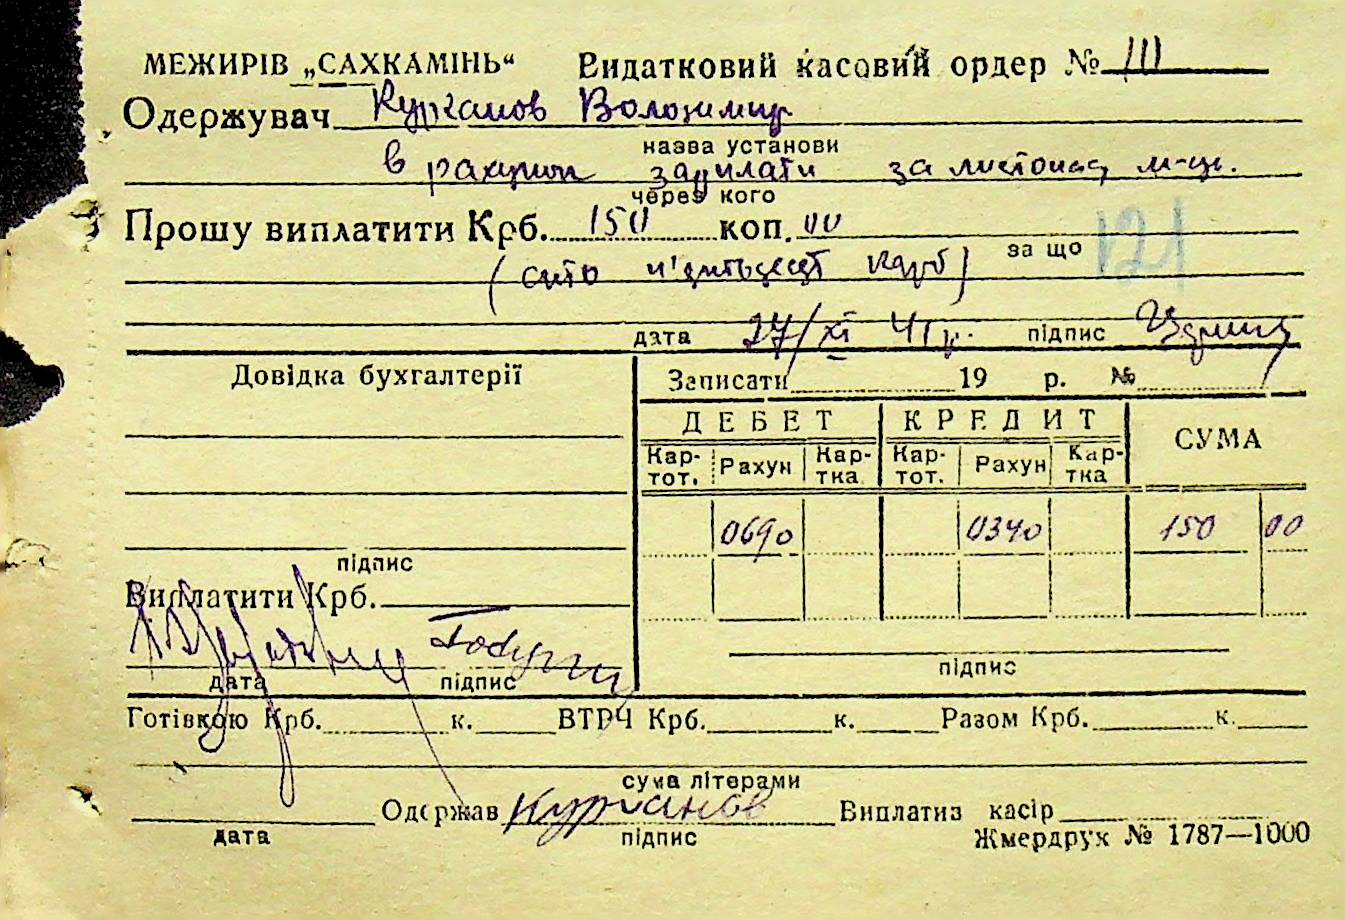 МЕЖИРІВ „САХКАМІНЬ“ Видатковий касовий ордер № 111
Одержувач Курканов Володимир
назва установи
в рахунок зарплати за листопад м-ць.
через кого
Прошу виплатити Крб. 150 коп. 00
за що 121
(сто п'ятьдесят карб)
дата 27/XI 41 р. підпис
Довідка бухгалтерії
Записати 19 р. №
ДЕБЕТ КРЕДИТ СУМА
Кар-тот. Рахун Кар-тка Кар-тот. Рахун Кар-тка
0690 0340 150 00
підпис
Виплатити Крб.
дата підпис
підпис
Готівкою Крб. к. ВТРЧ Крб. к. Разом Крб. к.
сума літерами
Одержав Курканов Виплатив касір
дата підпис
Жмердрук № 1787—1000